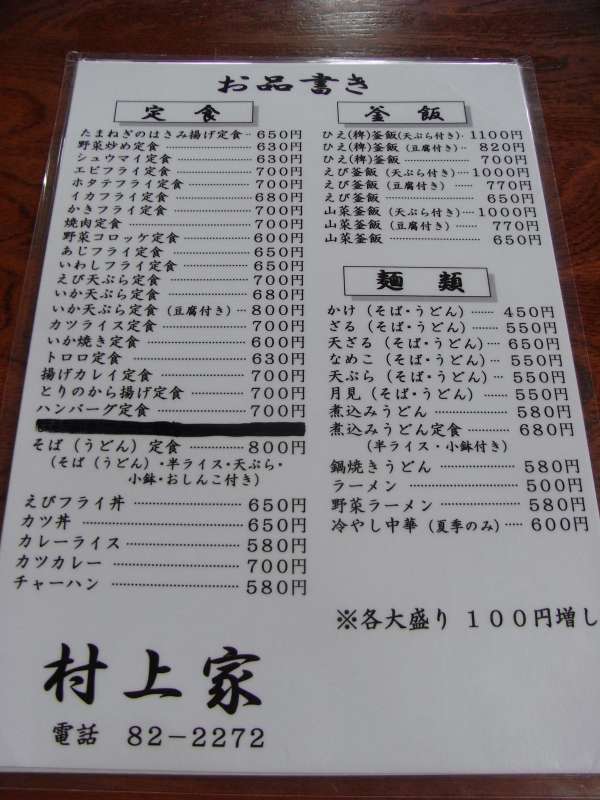 お品書き
定食
たまねぎのはさみ揚げ定食‥650円
野菜炒め定食 ………… 630円
シュウマイ定食 ………… 630円
エビフライ定食 ………… 700円
ホタテフライ定食 ………… 700円
イカフライ定食 ………… 680円
かきフライ定食 ………… 700円
焼肉定食 ………… 700円
野菜コロッケ定食 ………… 600円
あじフライ定食 ………… 650円
いわしフライ定食 ………… 650円
えび天ぷら定食 ………… 700円
いか天ぷら定食 ………… 680円
いか天ぷら定食(豆腐付き)… 800円
カツライス定食 ………… 700円
いか焼き定食 ………… 600円
トロロ定食 ………… 630円
揚げカレイ定食 ………… 700円
とりのから揚げ定食 ………… 700円
ハンバーグ定食 ………… 700円
そば(うどん)定食 ………… 800円
(そば(うどん)・半ライス・天ぷら・
小鉢・おしんこ付き)
えびフライ丼 ………… 650円
カツ丼 ………… 650円
カレーライス ………… 580円
カツカレー ………… 700円
チャーハン ………… 580円
釜飯
ひえ(稗)釜飯(天ぷら付き)‥1100円
ひえ(稗)釜飯(豆腐付き)… 820円
ひえ(稗)釜飯 ………… 700円
えび釜飯(天ぷら付き)…1000円
えび釜飯(豆腐付き) …… 770円
えび釜飯 ………… 650円
山菜釜飯(天ぷら付き)…1000円
山菜釜飯(豆腐付き) …… 770円
山菜釜飯 ………… 650円
麺類
かけ(そば・うどん) …… 450円
ざる(そば・うどん) …… 550円
天ざる(そば・うどん)… 650円
なめこ(そば・うどん)… 550円
天ぷら(そば・うどん)… 550円
月見(そば・うどん) …… 550円
煮込みうどん ………… 580円
煮込みうどん定食 ……… 680円
(半ライス・小鉢付き)
鍋焼きうどん ………… 580円
ラーメン ………… 500円
野菜ラーメン ………… 580円
冷やし中華(夏季のみ)…… 600円
※各大盛り 100円増し
村上家
電話 82-2272